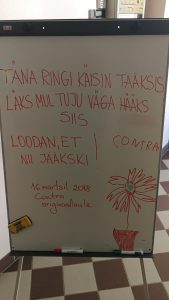 TÄNA RINGI KÄISIN TAAKSIS
LÄKS MUL TUJU VÄGA HÄÄKS
SIIS
LOODAN, ET
NII JÄÄKSKI!
CONTRA
16 märtsil 2018
Contra
originaallaule